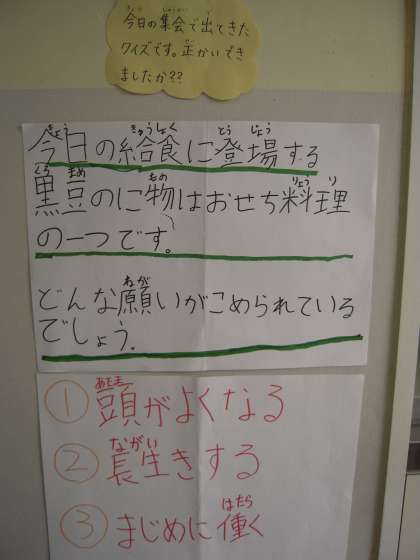 今日の集会で出てきた
クイズです。正かいでき
ましたか??
今日の給食に登場する
黒豆のに物はおせち料理
の一つです。
どんな願いがこめられている
でしょう。
①頭がよくなる
②長生きする
③まじめに働く